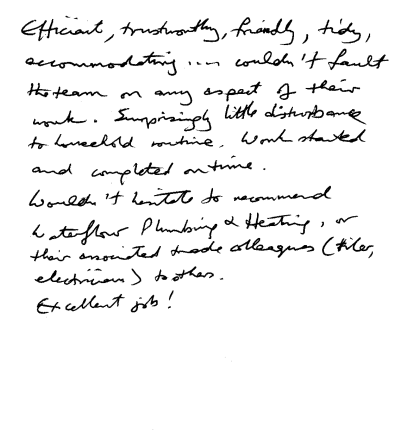 Efficient, trustworthy, friendly, tidy,
accommodating .... couldn't fault
the team on any aspect of their
work. Surprisingly little disturbance
to household routine. Work started
and completed on time.
Wouldn't hesitate to recommend
Waterflow Plumbing & Heating, or
their associated trade colleagues (tiler,
electrician) to others.
Excellent job!